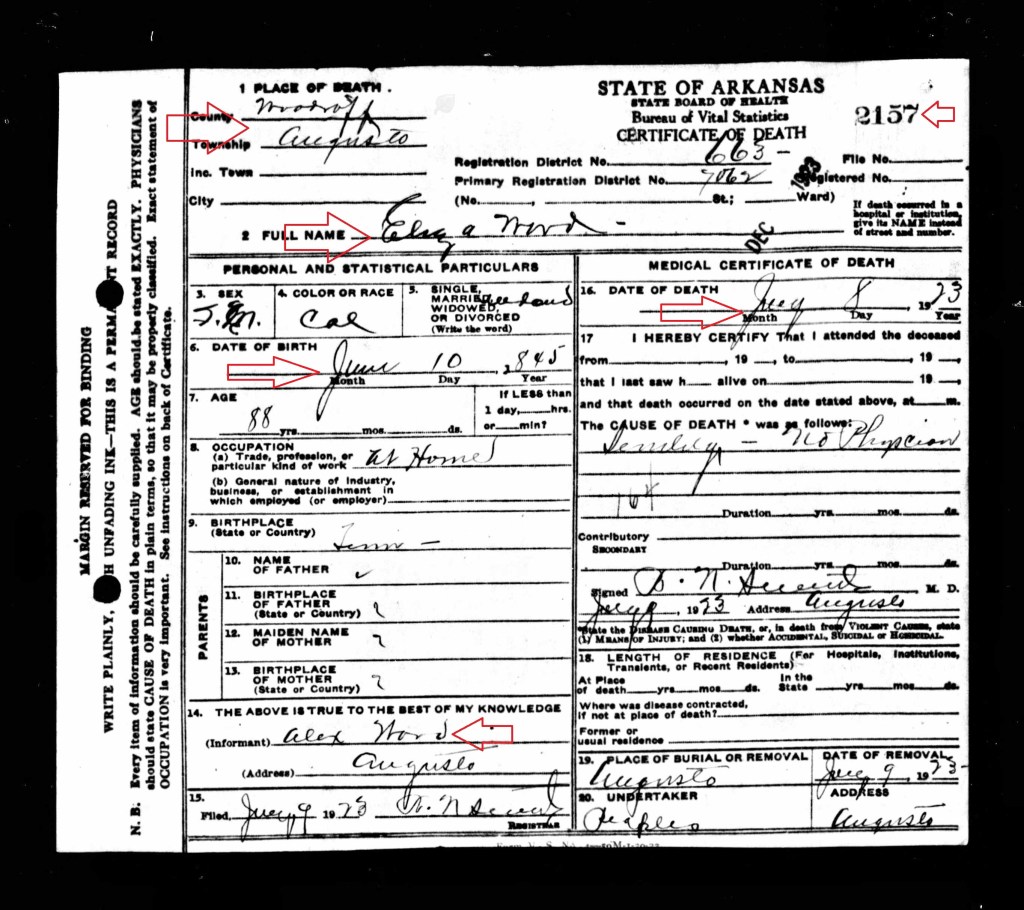 1 PLACE OF DEATH.
County Woodroff
Township Augusta
Inc. Town
City
STATE OF ARKANSAS
STATE BOARD OF HEALTH
Bureau of Vital Statistics
CERTIFICATE OF DEATH
2157
Registration District No. 663 -
File No.
Primary Registration District No. 7062
Registered No.
(No. , St.; Ward)
If death occurred in a
hospital or institution,
give its NAME instead
of street and number.
DEC 1923
2 FULL NAME Eliza Word -
PERSONAL AND STATISTICAL PARTICULARS
3. SEX
4. COLOR OR RACE
Col
5. SINGLE,
MARRIED,
WIDOWED,
OR DIVORCED
(Write the word)
6. DATE OF BIRTH
June 10, 1845
Month Day Year
7. AGE
88 yrs. mos. ds.
If LESS than
1 day, hrs.
or min?
8. OCCUPATION
(a) Trade, profession, or
particular kind of work at Home
(b) General nature of Industry,
business, or establishment in
which employed (or employer)
9. BIRTHPLACE
(State or Country)
Tenn -
PARENTS
10. NAME
OF FATHER
11. BIRTHPLACE
OF FATHER ?
(State or Country)
12. MAIDEN NAME
OF MOTHER ?
13. BIRTHPLACE
OF MOTHER ?
(State or Country)
14. THE ABOVE IS TRUE TO THE BEST OF MY KNOWLEDGE
(Informant) Alex Word
(Address) Augusta
15.
Filed, 9 1923
REGISTRAR
MEDICAL CERTIFICATE OF DEATH
16. DATE OF DEATH
8, 1923
Month Day Year
17 I HEREBY CERTIFY That I attended the deceased
from , 19 , to , 19 ,
that I last saw h alive on , 19 ,
and that death occurred on the date stated above, at m.
The CAUSE OF DEATH * was as follows:
- No Physcian
164
Duration yrs. mos. ds.
Contributory
SECONDARY
Duration yrs. mos. ds.
Signed M. D.
9, 1923 Address Augusta
*State the DISEASE CAUSING DEATH, or, in death from VIOLENT CAUSES, state
(1) MEANS OF INJURY; and (2) whether ACCIDENTAL, SUICIDAL OR HOMICIDAL.
18. LENGTH OF RESIDENCE (For Hospitals, Institutions,
Transients, or Recent Residents)
At Place In the
of death yrs. mos. ds. State yrs. mos. ds.
Where was disease contracted,
if not at place of death?
Former or
usual residence
19. PLACE OF BURIAL OR REMOVAL
Augusta
DATE OF REMOVAL
9, 1923
20. UNDERTAKER
Peoples
ADDRESS
Augusta
MARGIN RESERVED FOR BINDING
WRITE PLAINLY, WITH UNFADING INK—THIS IS A PERMANENT RECORD
N. B. Every item of information should be carefully supplied. AGE should be stated EXACTLY. PHYSICIANS
should state CAUSE OF DEATH in plain terms, so that it may be properly classified. Exact statement of
OCCUPATION is very important. See instructions on back of Certificate.